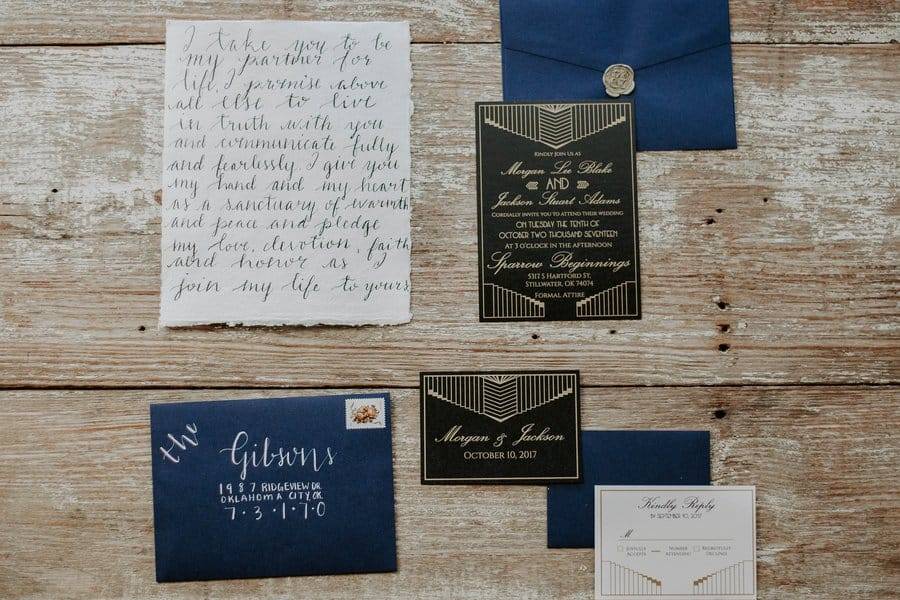 I take you to be
my partner for
life. I promise above
all else to live
in truth with you
and communicate fully
and fearlessly. I give you
my hand and my heart
as a sanctuary of warmth
and peace and pledge
my love, devotion, faith
and honor as I
join my life to yours
KINDLY JOIN US AS
Morgan Lee Blake
AND
Jackson Stuart Adams
CORDIALLY INVITE YOU TO ATTEND THEIR WEDDING
ON TUESDAY THE TENTH OF
OCTOBER TWO THOUSAND SEVENTEEN
AT 3 O'CLOCK IN THE AFTERNOON
Sparrow Beginnings
5317 S HARTFORD ST,
STILLWATER, OK 74074
FORMAL ATTIRE
the
Gibsons
1987 RIDGEVIEW DR.
OKLAHOMA CITY, OK
7·3·1·7·0
Morgan & Jackson
OCTOBER 10, 2017
Kindly Reply
BY SEPTEMBER 10, 2017
M
JOYFULLY ACCEPTS
NUMBER ATTENDING
REGRETFULLY DECLINES